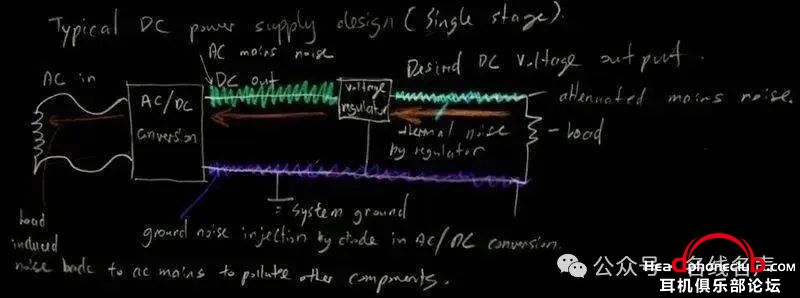 Typical DC power supply design (Single stage).
AC mains noise
DC out
Desired DC voltage output.
AC in
AC/DC
conversion
voltage
regulator
attenuated mains noise.
thermal noise
by regulator
Load
System ground
ground noise injection by diode in AC/DC conversion.
Load
induced
noise back to ac mains to pollute other components.
公众号 · 名线名声
Headphoneclub.com
耳机俱乐部论坛